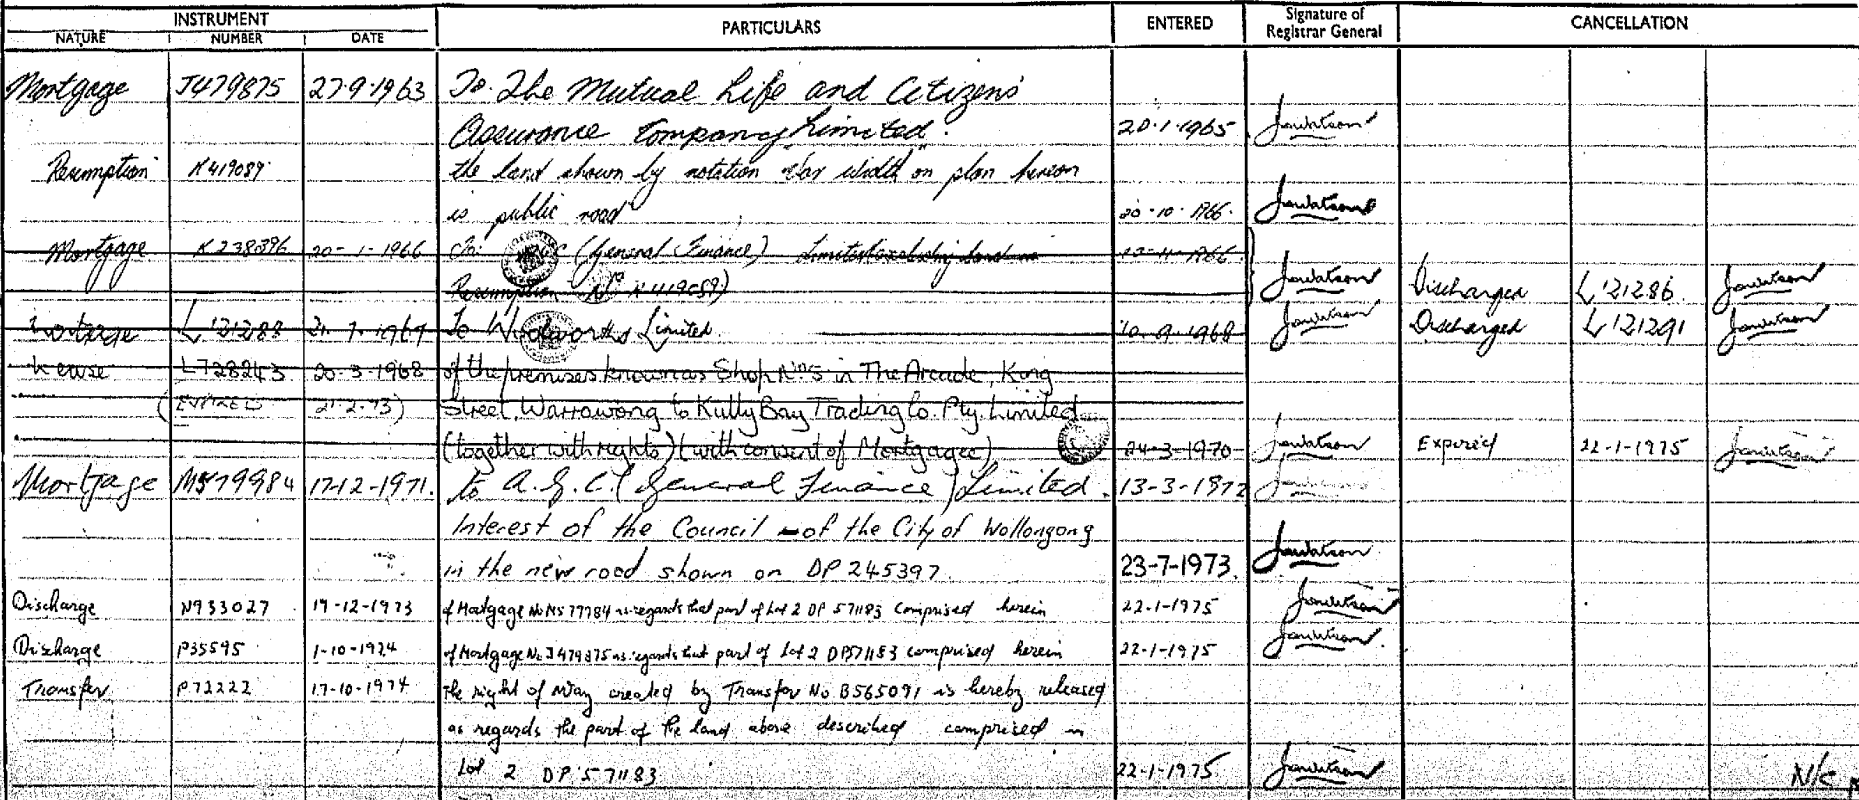 INSTRUMENT PARTICULARS ENTERED Signature of Registrar General CANCELLATION
NATURE NUMBER DATE
Mortgage J479875 27-9-1963 To The Mutual Life and Citizens'
Assurance Company Limited. 20-1-1965 Jawatson
Resumption K419089 the land shown by notation "Var Width" on plan hereon
is public road 20-10-1966 Jawatson
Mortgage K238396 20-1-1966 To: (General Finance) Limited (excluding land in
Resumption No K419089) Jawatson Discharged L121286 Jawatson
Mortgage L121288 21-7-1967 To Woolworths Limited 10-9-1968 Jawatson Discharged L121291 Jawatson
Lease L728243 20-3-1968 of the premises known as Shop No 5 in The Arcade, King
(EXPIRES 21-2-73) Street, Warrawong to Kully Bay Trading Co. Pty. Limited
(together with rights) (with consent of Mortgagee) 24-3-1970 Jawatson Expired 22-1-1975 Jawatson
Mortgage M579984 17-12-1971. to A.G.C. (General Finance) Limited. 13-3-1972
Interest of the Council of the City of Wollongong
in the new road shown on DP 245397. 23-7-1973. Jawatson
Discharge N933027 19-12-1973 of Mortgage No M579984 as regards that part of Lot 2 DP 571183 comprised herein 22-1-1975 Jawatson
Discharge P35595 1-10-1974 of Mortgage No J479875 as regards that part of Lot 2 DP571183 comprised herein 22-1-1975 Jawatson
Transfer P72222 17-10-1974 the right of Way created by Transfer No B565091 is hereby released
as regards the part of the land above described comprised in
Lot 2 DP 571183 22-1-1975 Jawatson N/C